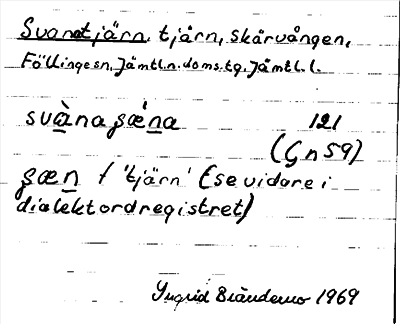 Svanatjärn. tjärn, skärvången,
Föllinge sn. Jämtl.n.doms.tg. Jämtl.l.
svàna ʂæ̀na 121
(Çn 59)
ʂæn f 'tjärn' (se vidare i
dialektordregistret)
Ingrid 1969